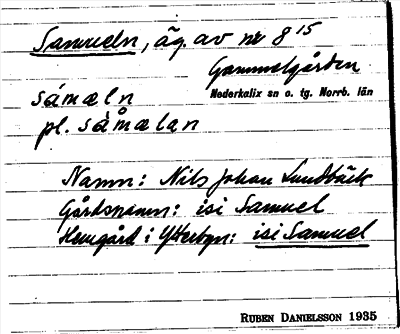 Samueln, äg. av nr 8 15
Gammelgården
Nederkalix sn o. tg. Norrb. län
sámæln
pl. sàmælan
Namn: Nils Johan Lundbäck
Gårdsnamn: isi Samuel
Hemgård i Ytterbyn: isi Samuel
RUBEN DANIELSSON 1935